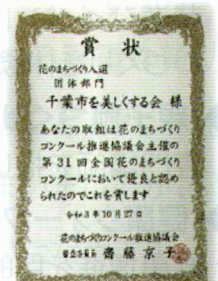 賞状
花のまちづくり入選
団体部門
千葉市を美しくする会 様
あなたの取組は花のまちづくり
コンクール推進協議会主催の
第31回全国花のまちづくり
コンクールにおいて優良と認め
られたのでこれを賞します
令和3年10月27日
花のまちづくりコンクール推進協議会
審査委員長 齋藤京子